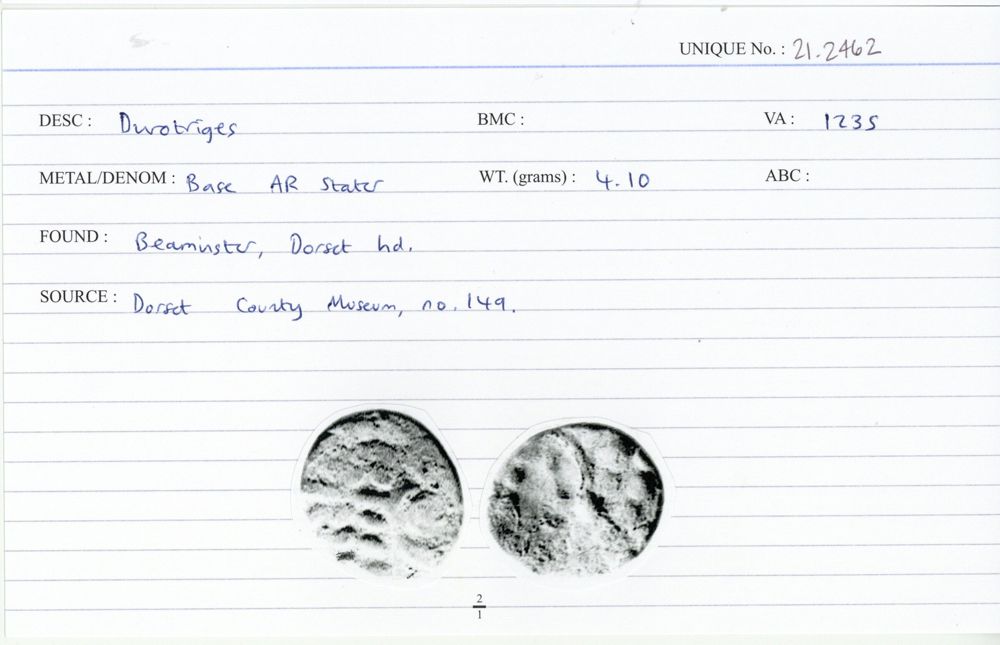 UNIQUE No. : 21.2462
DESC : Durotriges BMC : VA : 1235
METAL/DENOM : Base AR Stater WT. (grams) : 4.10 ABC :
FOUND : Beaminster, Dorset hd.
SOURCE : Dorset County Museum, no. 149.
2
1